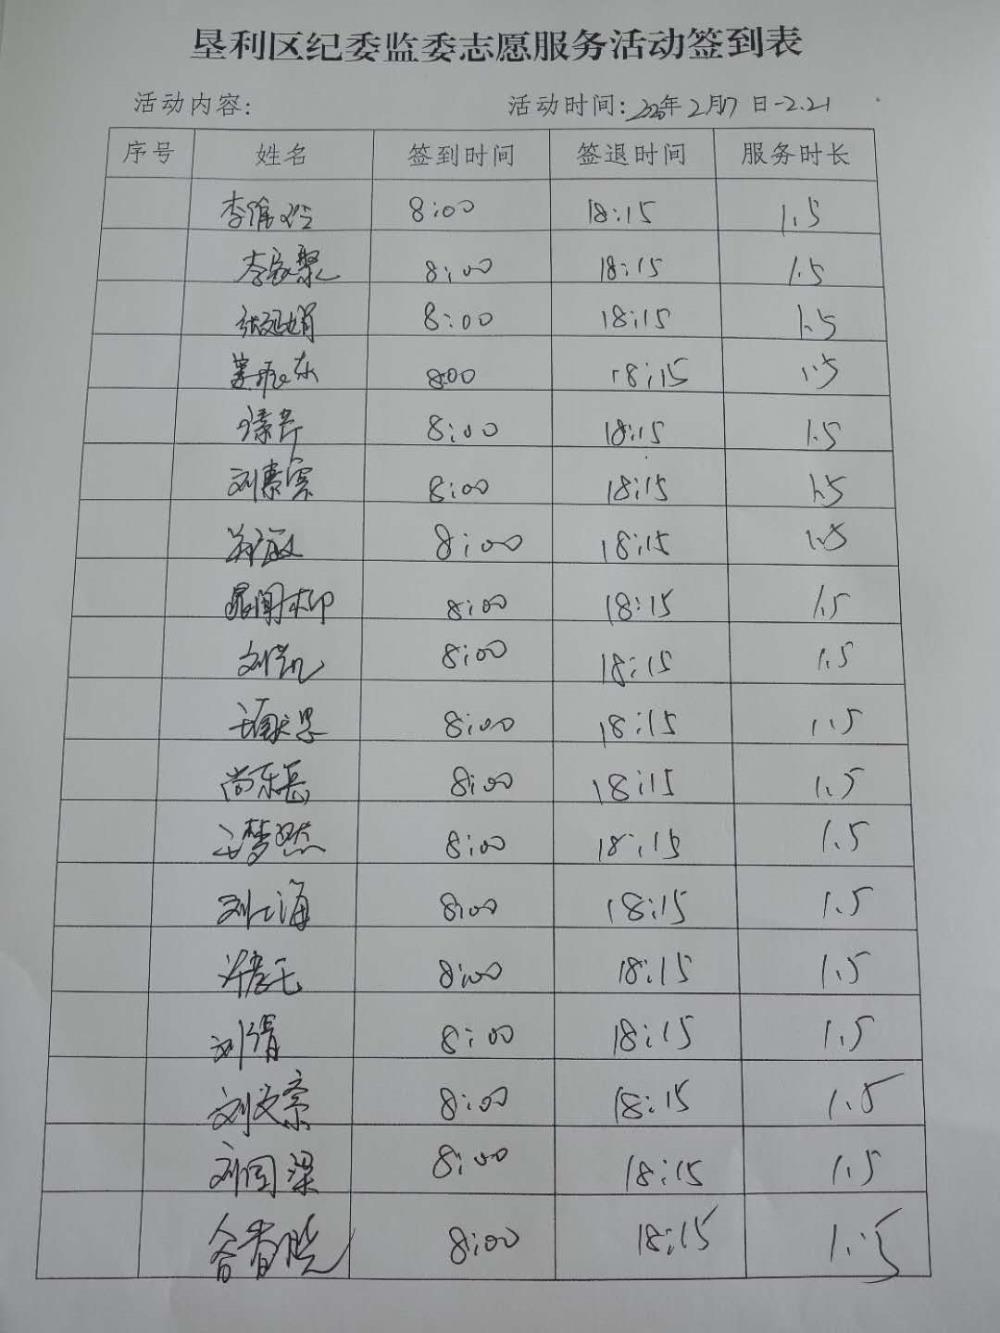 垦利区纪委监委志愿服务活动签到表
活动内容: 活动时间: 2020年2月17日-2.21
序号 姓名 签到时间 签退时间 服务时长
8:00 18:15 1.5
李家聚 8:00 18:15 1.5
8:00 18:15 1.5
8:00 18:15 1.5
8:00 18:15 1.5
刘素滨 8:00 18:15 1.5
8:00 18:15 1.5
8:00 18:15 1.5
刘凯 8:00 18:15 1.5
8:00 18:15 1.5
尚东岳 8:00 18:15 1.5
王梦然 8:00 18:15 1.5
刘仁海 8:00 18:15 1.5
8:00 18:15 1.5
刘倩 8:00 18:15 1.5
刘文素 8:00 18:15 1.5
刘国梁 8:00 18:15 1.5
8:00 18:15 1.5